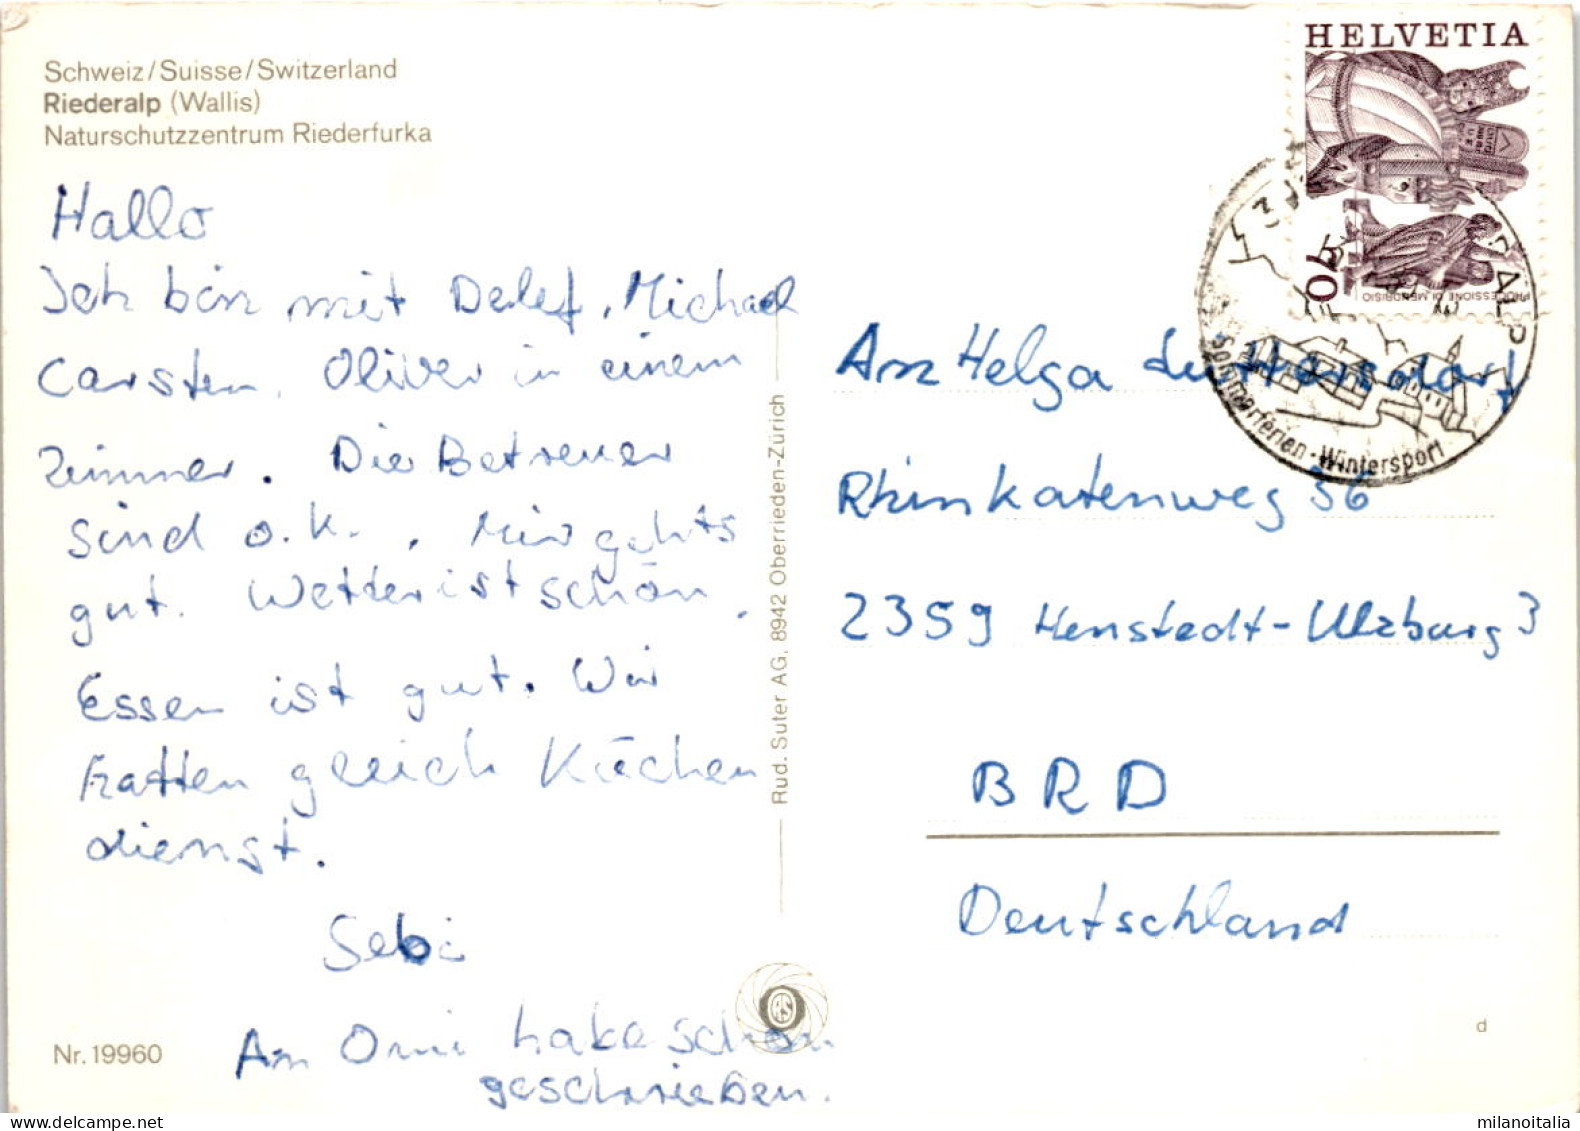 Schweiz/Suisse/Switzerland
Riederalp (Wallis)
Naturschutzzentrum Riederfurka
Hallo
Ich bin mit Detlef, Michael
Carsten, Oliver in einem
Zimmer. Die Betreuer
sind o.k., Mir gehts
gut. Wetter ist schön,
Essen ist gut. Wir
hatten gleich Küchen
dienst.
Sebi
An Omi habe schon
geschrieben.
Nr. 19960
Rud. Suter AG, 8942 Oberrieden-Zürich
HELVETIA
70
PROCESSIONE DI MENDRISIO
Sommerferien-Wintersport
An Helga
Rhinkatenweg 36
2359 Henstedt-Ulzburg 3
BRD
Deutschland
d
milanoitalia